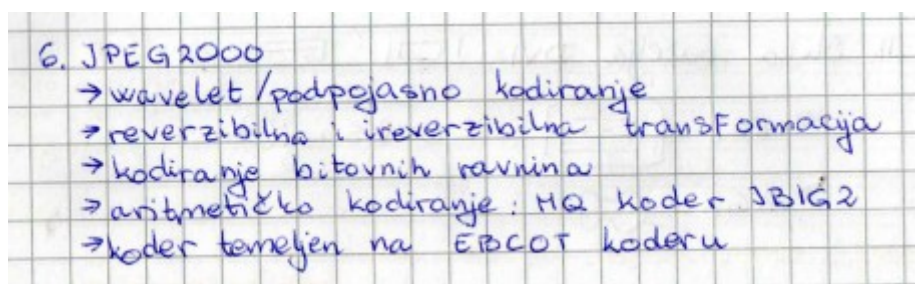 6. JPEG2000
→ wavelet/podpojasno kodiranje
→ reverzibilna i ireverzibilna transformacija
→ kodiranje bitovnih ravnina
→ aritmetičko kodiranje: MQ koder JBIG2
→ koder temeljen na EBCOT koderu